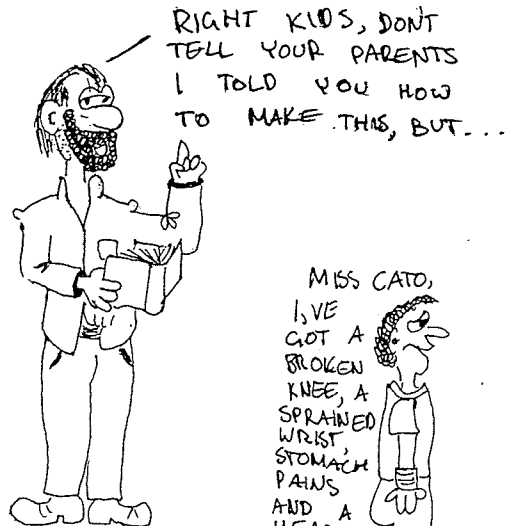 RIGHT KIDS, DON'T
TELL YOUR PARENTS
I TOLD YOU HOW
TO MAKE THIS, BUT...
MISS CATO,
I,VE
GOT A
BROKEN
KNEE, A
SPRAINED
WRIST,
STOMACH
PAINS
AND A